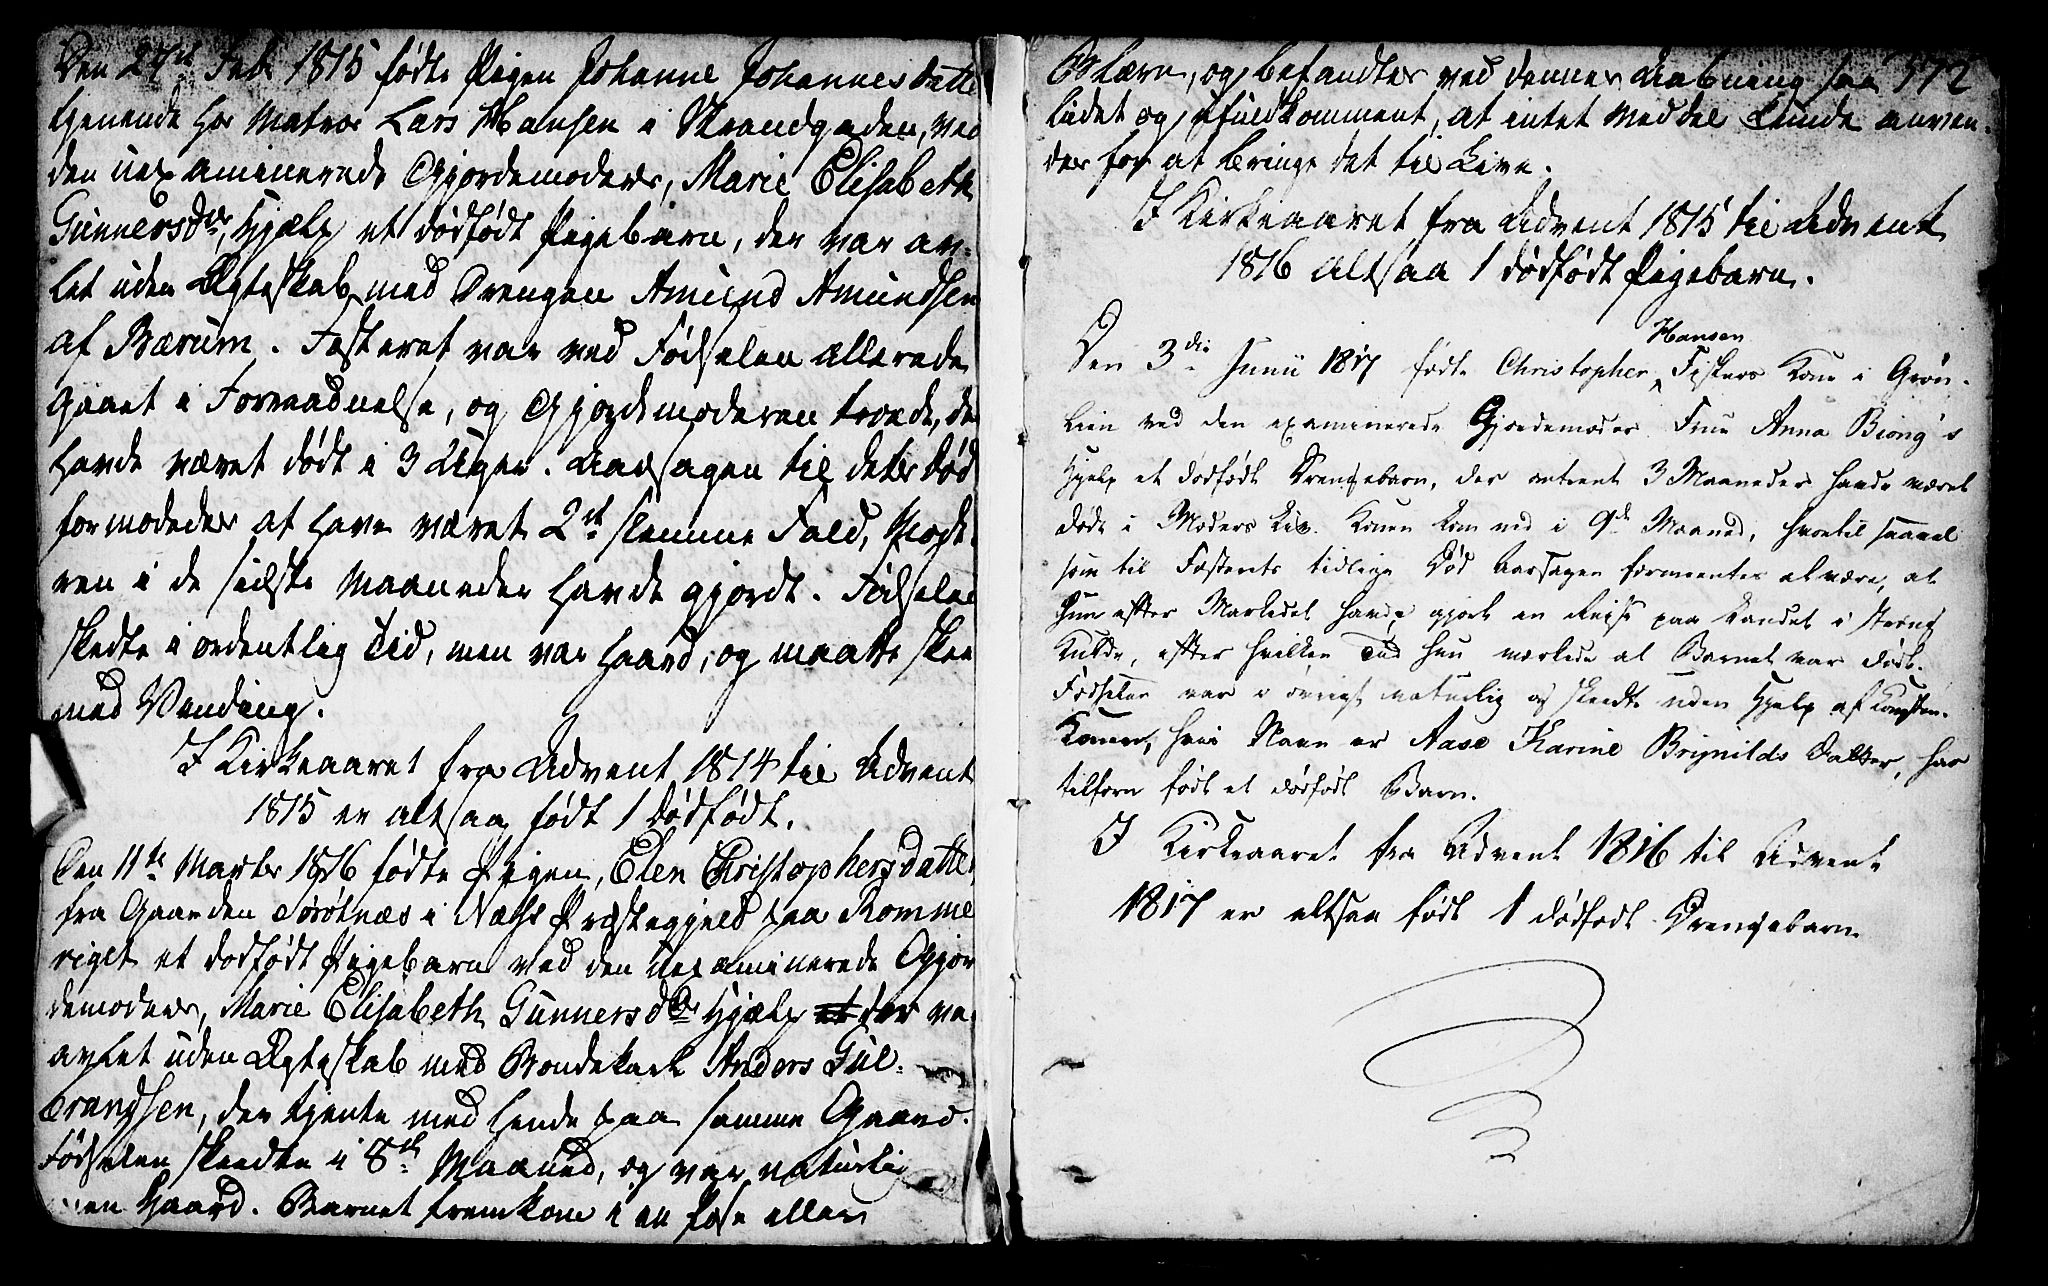 Den 27de Feb. 1815 fødte Pigen Johanne Johannesdatter
tjenende hos Matros Lars Hansen i Strandgaden, ved
den uexaminerede Gjordemoders, Marie Elisabeth
Gunnersdtrs, Hjælp et dødfødt Pigebarn, der var av-
let uden Ægteskab med Drengen Amund Amundsen
af Bærum. Fosteret var ved Fødselen allerede
gaaet i Forraadnelse, og Gjordemoderen troede, det
havde været dødt i 3 Uger. Aarsagen til dets Død
formodedes at have været 2de slemme Fald, Mode-
ren i de sidste Maaneder havde gjordt. Fødselen
skedte i ordentlig Tid, men var haard, og maatte skee
med Vending.
I Kirkeaaret fra Advent 1814 til Advent
1815 er altsaa født 1 dødfødt.
Den 11te Marts 1816 fødte Pigen, Elen Christophersdatter
fra Gaarden Sørøtnæs i Næss Præstegjeld paa Romme
riget et dødfødt Pigebarn ved den uexaminerede Gjor
demoders, Marie Elisabeth Gunnersdtrs Hjælp et der var
avlet uden Ægteskab med Bondekarl Anders Gul-
brandsen, der tjente med hende paa samme Gaard.
Fødselen skeedte i 8de Maaned, og var naturlig
men haard. Barnet fremkom i en Pose eller
Blære, og befandtes ved dennes Aabning saa 572
lidet og ufuldkomment, at intet Middel kunde anven-
des for at bringe det til Live.
I Kirkeaaret fra Advent 1815 til Advent
1816 altsaa 1 dødfødt Pigebarn.
Hansen
Den 3die Junii 1817 fødte Christopher Fiskers Kone i Grøn-
lien ved den examinerede Gjordemoder Frue Anna Biong's
Hjelp et dødfødt Drengebarn, der omtrent 3 Maaneder havde været
dødt i Moders Liv. Konen kom ned i 9de Maaned, hvortil saavel
som til Fosterets tidlige Død Aarsagen formeentes at være, at
hun efter Markedet havde gjort en Reise paa Landet i streng
Kulde, efter hvilken Tid hun mærkede at Barnet var dødt.
Fødselen var i øvrigt naturlig og skeedte uden Hjelp af Konsten.
Konen, hvis Navn er Aase Karine Brynilds Datter, har
tilforn født et dødfødt Barn.
I Kirkeaaret fra Advent 1816 til Advent
1817 er altsaa født 1 dødfødt Drengebarn.